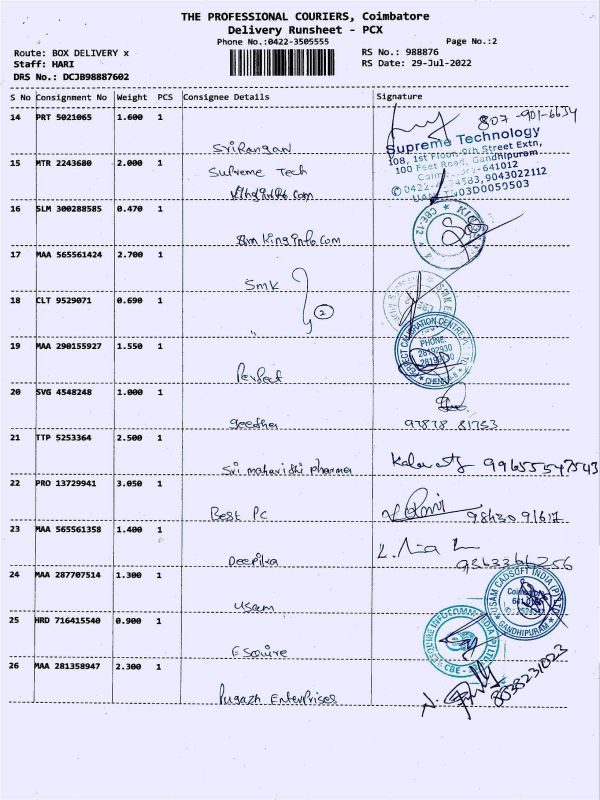 THE PROFESSIONAL COURIERS, Coimbatore
Delivery Runsheet - PCX
Phone No.:0422-3505555
Page No.:2
Route: BOX DELIVERY x
RS No.: 988876
Staff: HARI
RS Date: 29-Jul-2022
DRS No.: DCJB98887602
S No Consignment No Weight PCS Consignee Details Signature
14 PRT 5021065 1.600 1
SriRangan
807-901-6634
Supreme Technology
108, 1st Floor, 9th Street Extn,
100 Feet Road, Gandhipuram
641012
9043022112
03D0050503
15 MTR 2243680 2.000 1
Supreme Tech
16 SLM 300288585 0.470 1
kinginfo.com
CBE-12
17 MAA 565561424 2.700 1
SMK
18 CLT 9529071 0.690 1
"
2
19 MAA 290155927 1.550 1
Perfect
PHONE:
28192930
CHENNAI-6
20 SVG 4548248 1.000 1
geetha
97878 81753
21 TTP 5253364 2.500 1
Sri mahavidhi pharma
99655547543
22 PRO 13729941 3.050 1
Best PC
98430 91617
23 MAA 565561358 1.400 1
Deepika
24 MAA 287707514 1.300 1
Usam
USAM CADSOFT INDIA (P) LTD
Coimbatore
GANDHIPURAM
25 HRD 716415540 0.900 1
Esquire
CBE
26 MAA 281358947 2.300 1
Pugazh Enterprises
8838231023